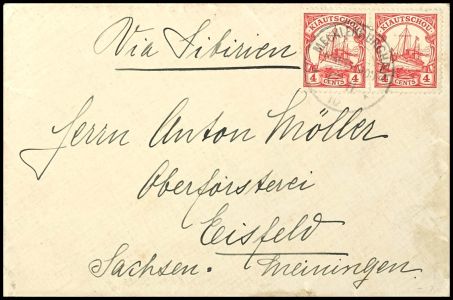 Via Sibirien
KIAUTSCHOU KIAUTSCHOU
4 CENTS 4 4 CENTS 4
Herrn Anton Möller
Oberförsterei
Eisfeld
Sachsen. Meiningen.